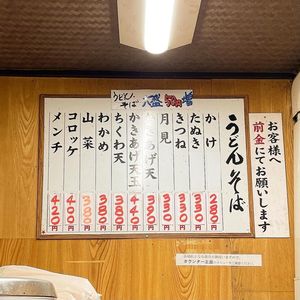 うどん・そば 大盛 50円増
お客様へ
前金にてお願いします
うどんそば
かけ 280円
たぬき 330円
きつね 330円
月見 330円
かきあげ天 390円
かきあげ天玉 440円
ちくわ天 380円
わかめ 380円
山菜 380円
コロッケ 400円
メンチ 420円